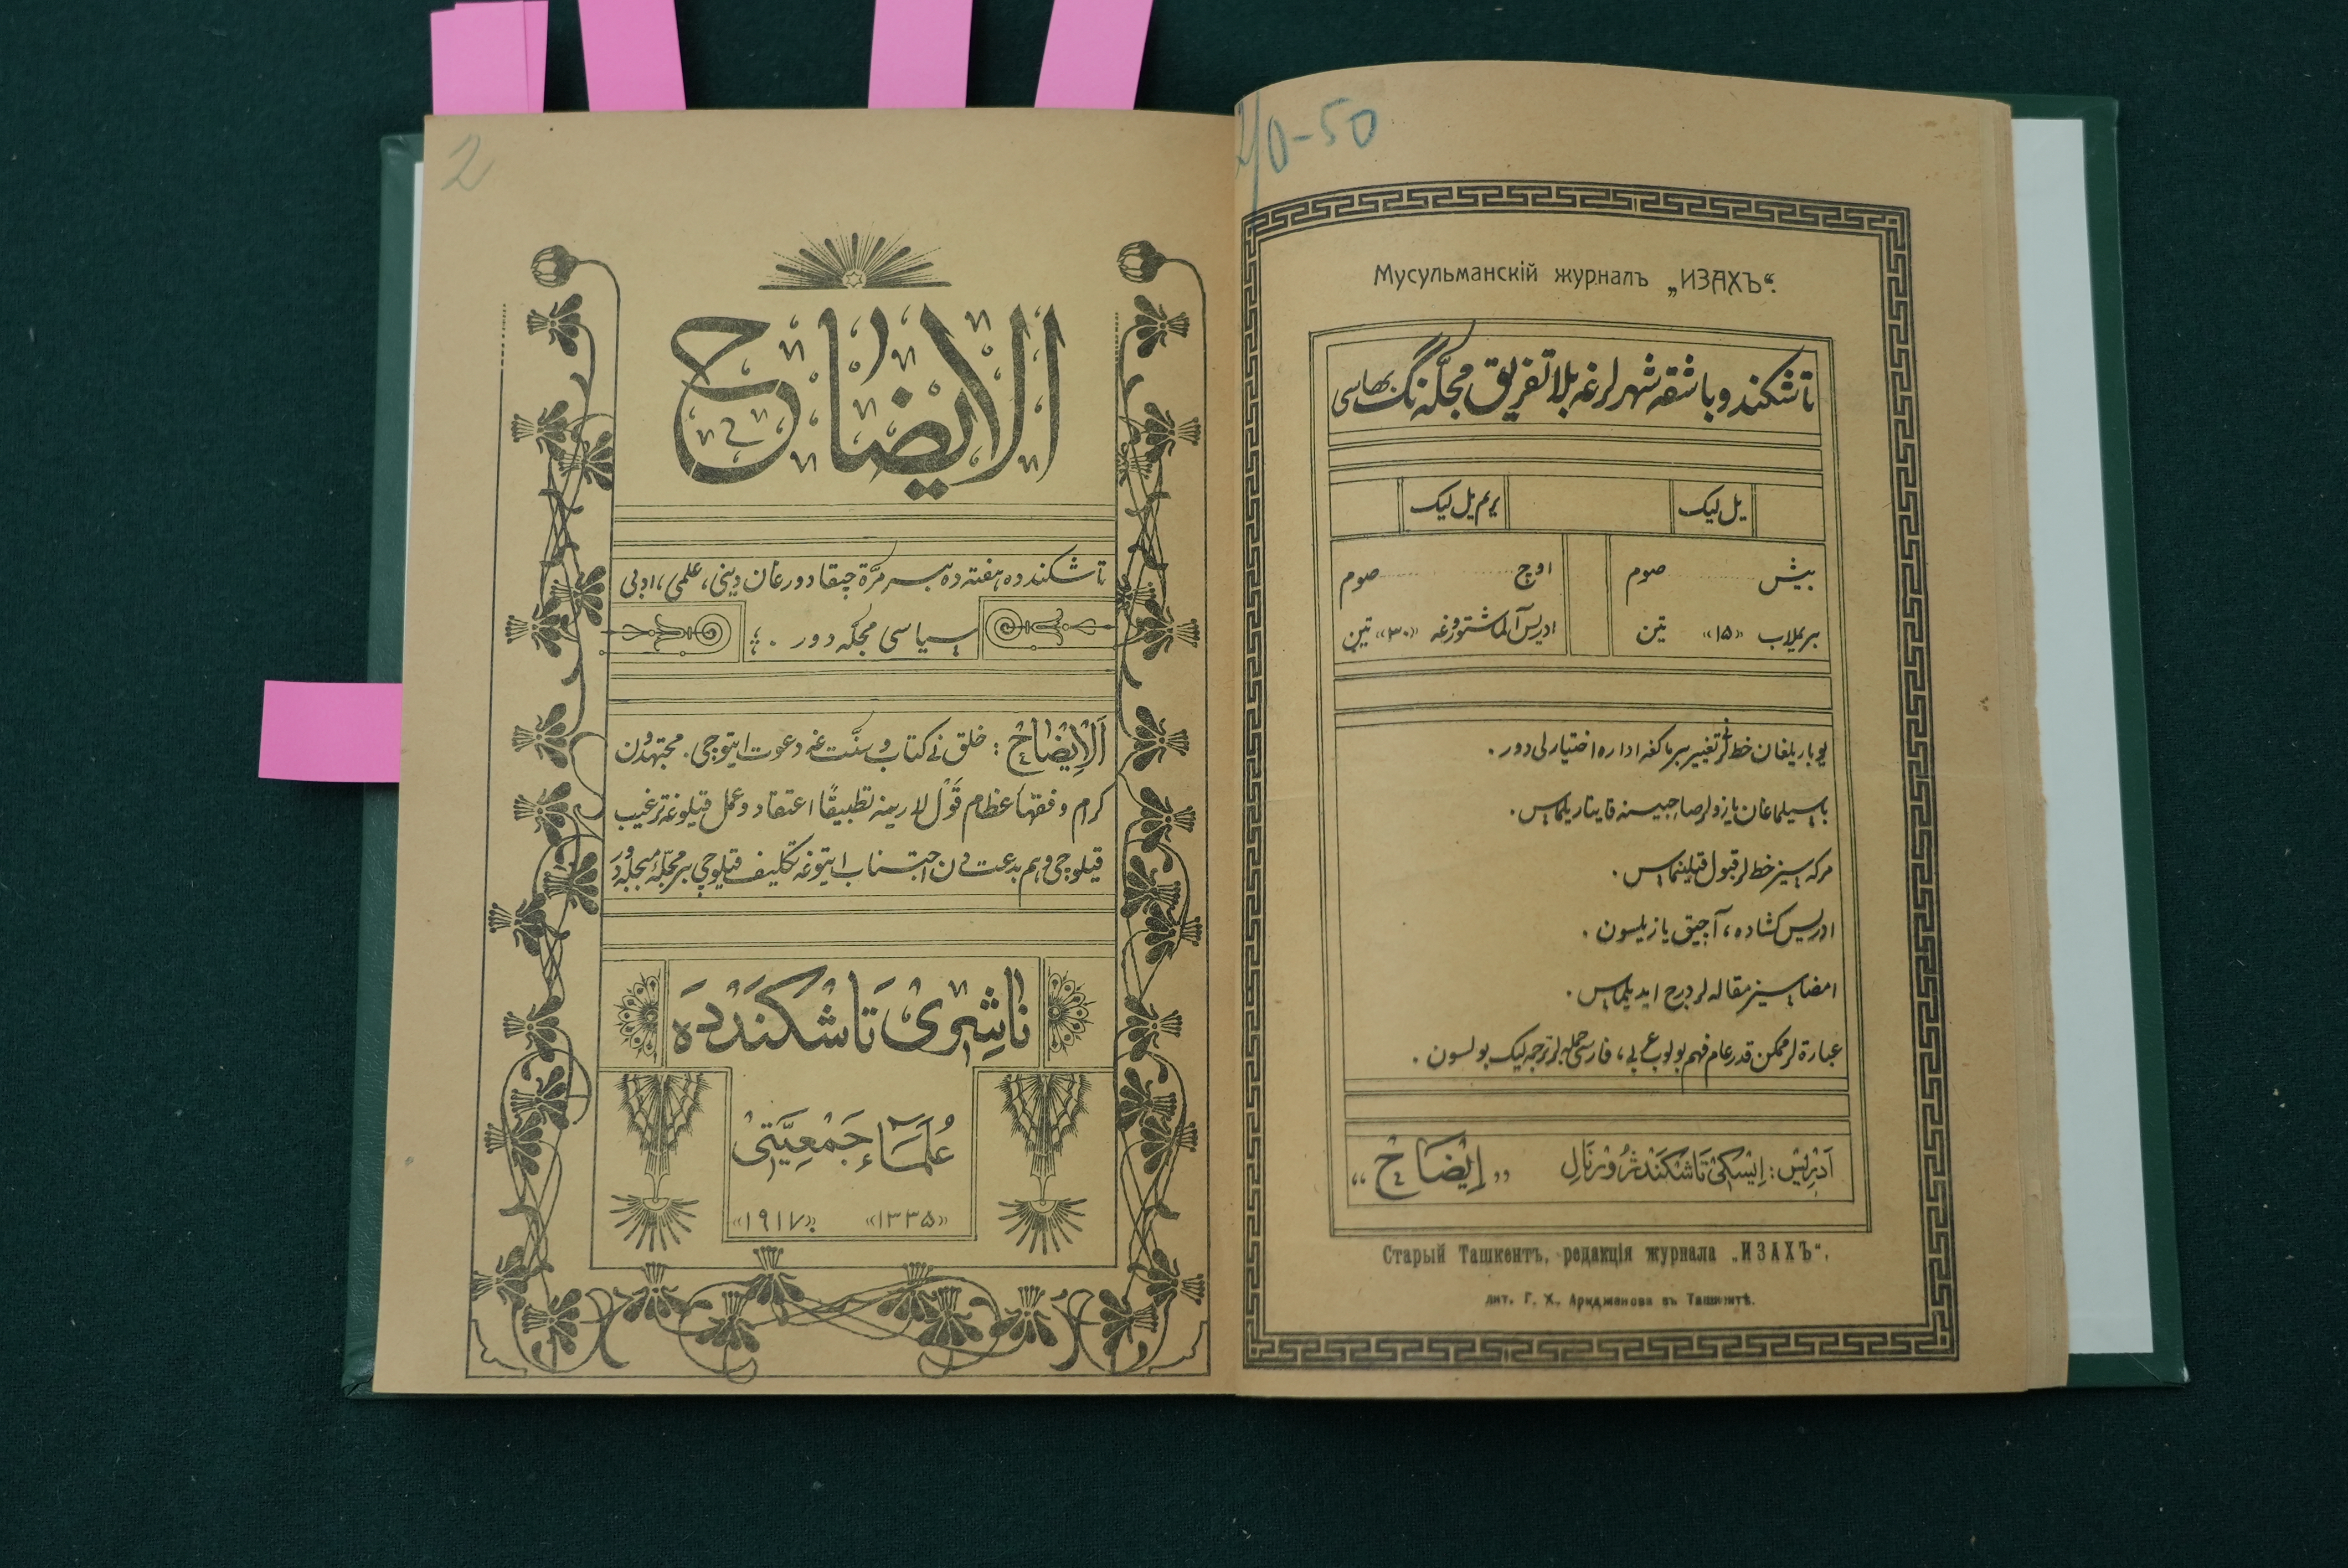 2
الايضاح
تاشكندده هفته ده بسر مرّة چيقادورغان دينى، علمى، ادبى
سياسى مجلّه دور .
اَلْاِيْضَاحْ : خلق نى كتاب و سنّت غه دعوت ايتوچى. مجتهدون
كرام و فقهاء عظام قَوْل لاريغه تطبيقًا اعتقاد و عمل قيلوغه ترغيب
قيلوچى و هم بدعت دن اجتناب ايتوغه تكليف قيلوچى بر مجلّۀ مبجله دور
نَاشِرِىْ تَاشْكَنْددَه
عُلَمَاءْ جَمْعِيَّتِىْ
«۱۳۳۵» «۱۹۱۷»
-50
Мусульманскій журналъ „ИЗАХЪ“.
تاشكند و باشقه شهرلرغه بلا تفريق مجلّه نگ بهاسى
يل ليك
يريم يل ليك
بيش ........ صوم
اوچ ........ صوم
بريملاب «۱۵» تين
ادريس آلماشتورغه «۳۰» تين
يوباريلغان خط لرنى تغيير بيرماكغه اداره اختيارلى دور .
باسيلماغان يازولر صاحبيسنه قايتاريلماس .
مركه سيز خط لر قبول قيلينماس .
ادريس كشاده ، آچيق يازيلسون .
امضاسيز مقاله لر درج ايديلماس .
عبارة لر ممكن قدر عام فهم بولوب عربى ، فارسى جمله لر ترجمه ليك بولسون .
آدْرِيسْ: اِيْسْكِىْ تَاشْكَنْد ژُوْرْنَالِ „اِيْضَاحْ“
Старый Ташкентъ, редакція журнала „ИЗАХЪ“.
лит. Г. Х. Арифджанова въ Ташкентѣ.